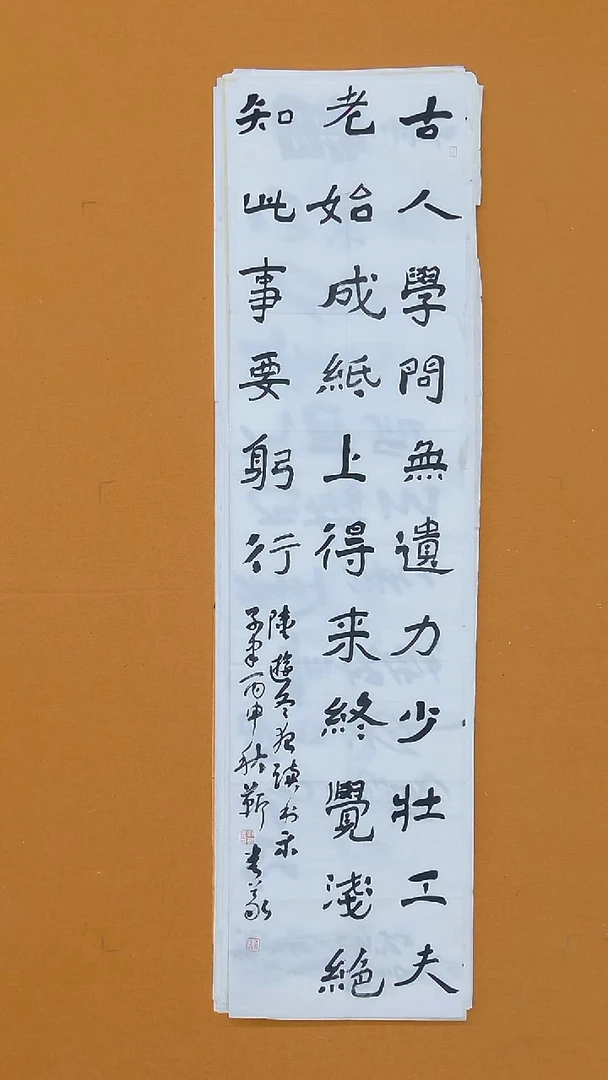 古人學問無遺力少壯工夫
老始成紙上得来終覺淺絕
知此事要躬行
陸游冬夜讀书示
子聿丙申秋靳